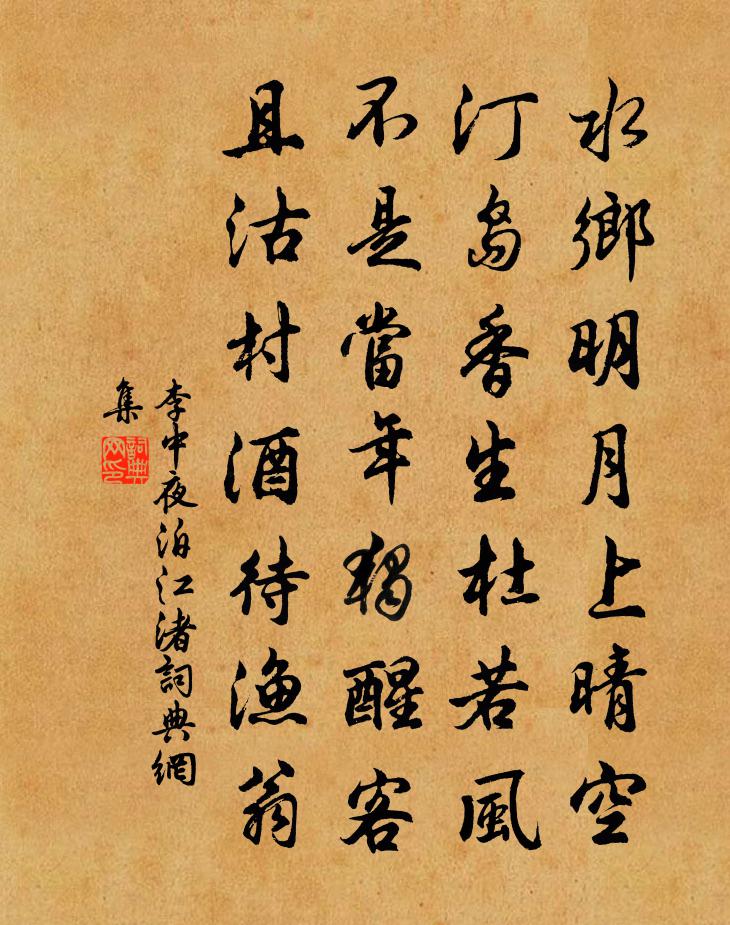 水鄉明月上晴空
汀島香生杜若風
不是當年獨醒客
且沽村酒待漁翁
李中夜泊江渚詞典網
集
詞典
网印